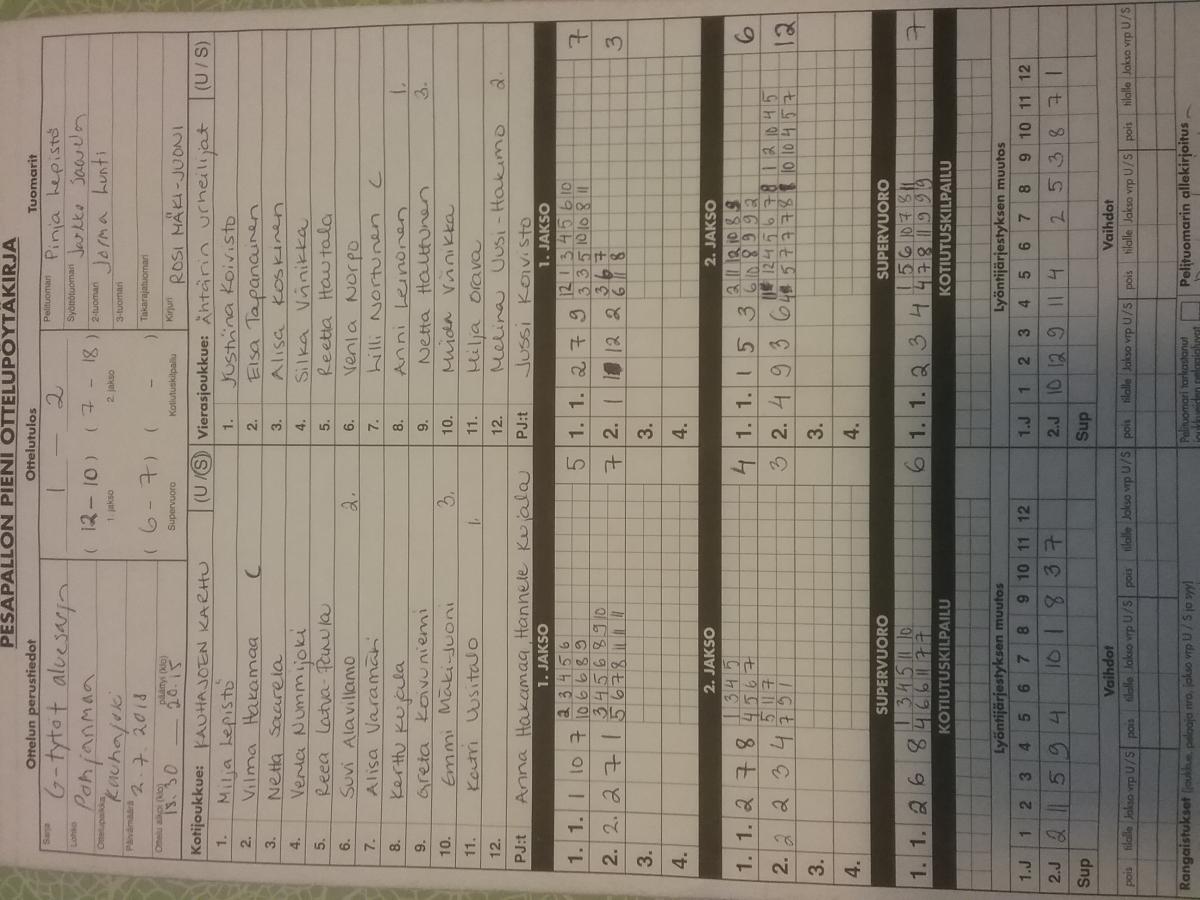 PESÄPALLON PIENI OTTELUPÖYTÄKIRJA
Ottelun perustiedot
Sarja G-tytöt aluesarja
Lohko Pohjanmaa
Ottelupaikka Kauhajoki
Päivämäärä 2.7.2018
Ottelu alkoi (klo) päättyi (klo)
18.30 — 20.15
Ottelutulos
1 — 2
(12-10) (7-18)
1. jakso 2. jakso
(6-7) ( - )
Supervuoro Kotiutuskilpailu
Tuomarit
Pelituomari Pinja Lepistö
Syöttötuomari Jarkko Saarela
2-tuomari Jorma Lunti
3-tuomari
Takarajatuomari
Kirjuri ROSI MÄKI-JUONI
Kotijoukkue: KAUHAJOEN KARHU (U/S)
1. Milja Lepistö
2. Vilma Hakamaa C
3. Netta Saarela
4. Venla Nummijoki
5. Reea Latva-Panula
6. Suvi Alavillamo 2.
7. Alisa Varamäki
8. Kerttu Kujala
9. Greta Koivuniemi
10. Emmi Mäki-Juoni 3.
11. Katri Uusitalo 1.
12.
PJ:t Anna Hakamaa, Hannele Kujala
Vierasjoukkue: Ähtärin Urheilijat (U/S)
1. Justiina Koivisto
2. Elsa Tapanainen
3. Alisa Koskinen
4. Silka Vänikka
5. Reetta Hautala
6. Venla Norpo
7. Lilli Nortunen C
8. Anni Leinonen 1.
9. Netta Hattunen 3.
10. Vänikka
11. Milja Orava
12. Melina Uusi-Hakimo 2.
PJ:t Jussi Koivisto
1. JAKSO
1. 1. 1 10 7 2 3 4 5 6 5
10 6 6 8 9
2. 2. 2 7 1 3 4 5 6 8 9 10 7
5 6 7 8 11 11 11
3.
4.
1. JAKSO
1. 1. 2 7 9 12 1 3 4 5 6 10 7
3 3 5 10 10 8 11
2. 1 12 2 3 6 7 3
6 11 8
3.
4.
2. JAKSO
1. 1. 2 7 8 1 3 4 5 4
4 5 6 7
2. 2 2 3 4 5 11 7 3
7 9 1
3.
4.
2. JAKSO
1. 1. 1 5 3 2 11 12 10 8 9 6
6 10 8 9 9 2
2. 4 9 3 6 12
3.
4.
SUPERVUORO
1. 1. 2 6 8 1 3 4 5 11 10 6
4 6 6 11 7 7
SUPERVUORO
1. 1. 2 3 4 1 5 6 10 7 8 11 7
4 7 8 11 9 9 9
KOTIUTUSKILPAILU
KOTIUTUSKILPAILU
Lyöntijärjestyksen muutos
1.J 1 2 3 4 5 6 7 8 9 10 11 12
2.J 2 11 5 9 4 10 1 8 3 7
Sup
Lyöntijärjestyksen muutos
1.J 1 2 3 4 5 6 7 8 9 10 11 12
2.J 10 12 9 11 4 2 5 3 8 7 1
Sup
Vaihdot
pois tilalle Jakso vrp U/S pois tilalle Jakso vrp U/S pois tilalle Jakso vrp U/S
Vaihdot
pois tilalle Jakso vrp U/S pois tilalle Jakso vrp U/S pois tilalle Jakso vrp U/S
Rangaistukset (joukkue, pelaaja nro, jakso vrp U/S ja syy)
Pelituomari tarkastanut
Pelituomarin allekirjoitus